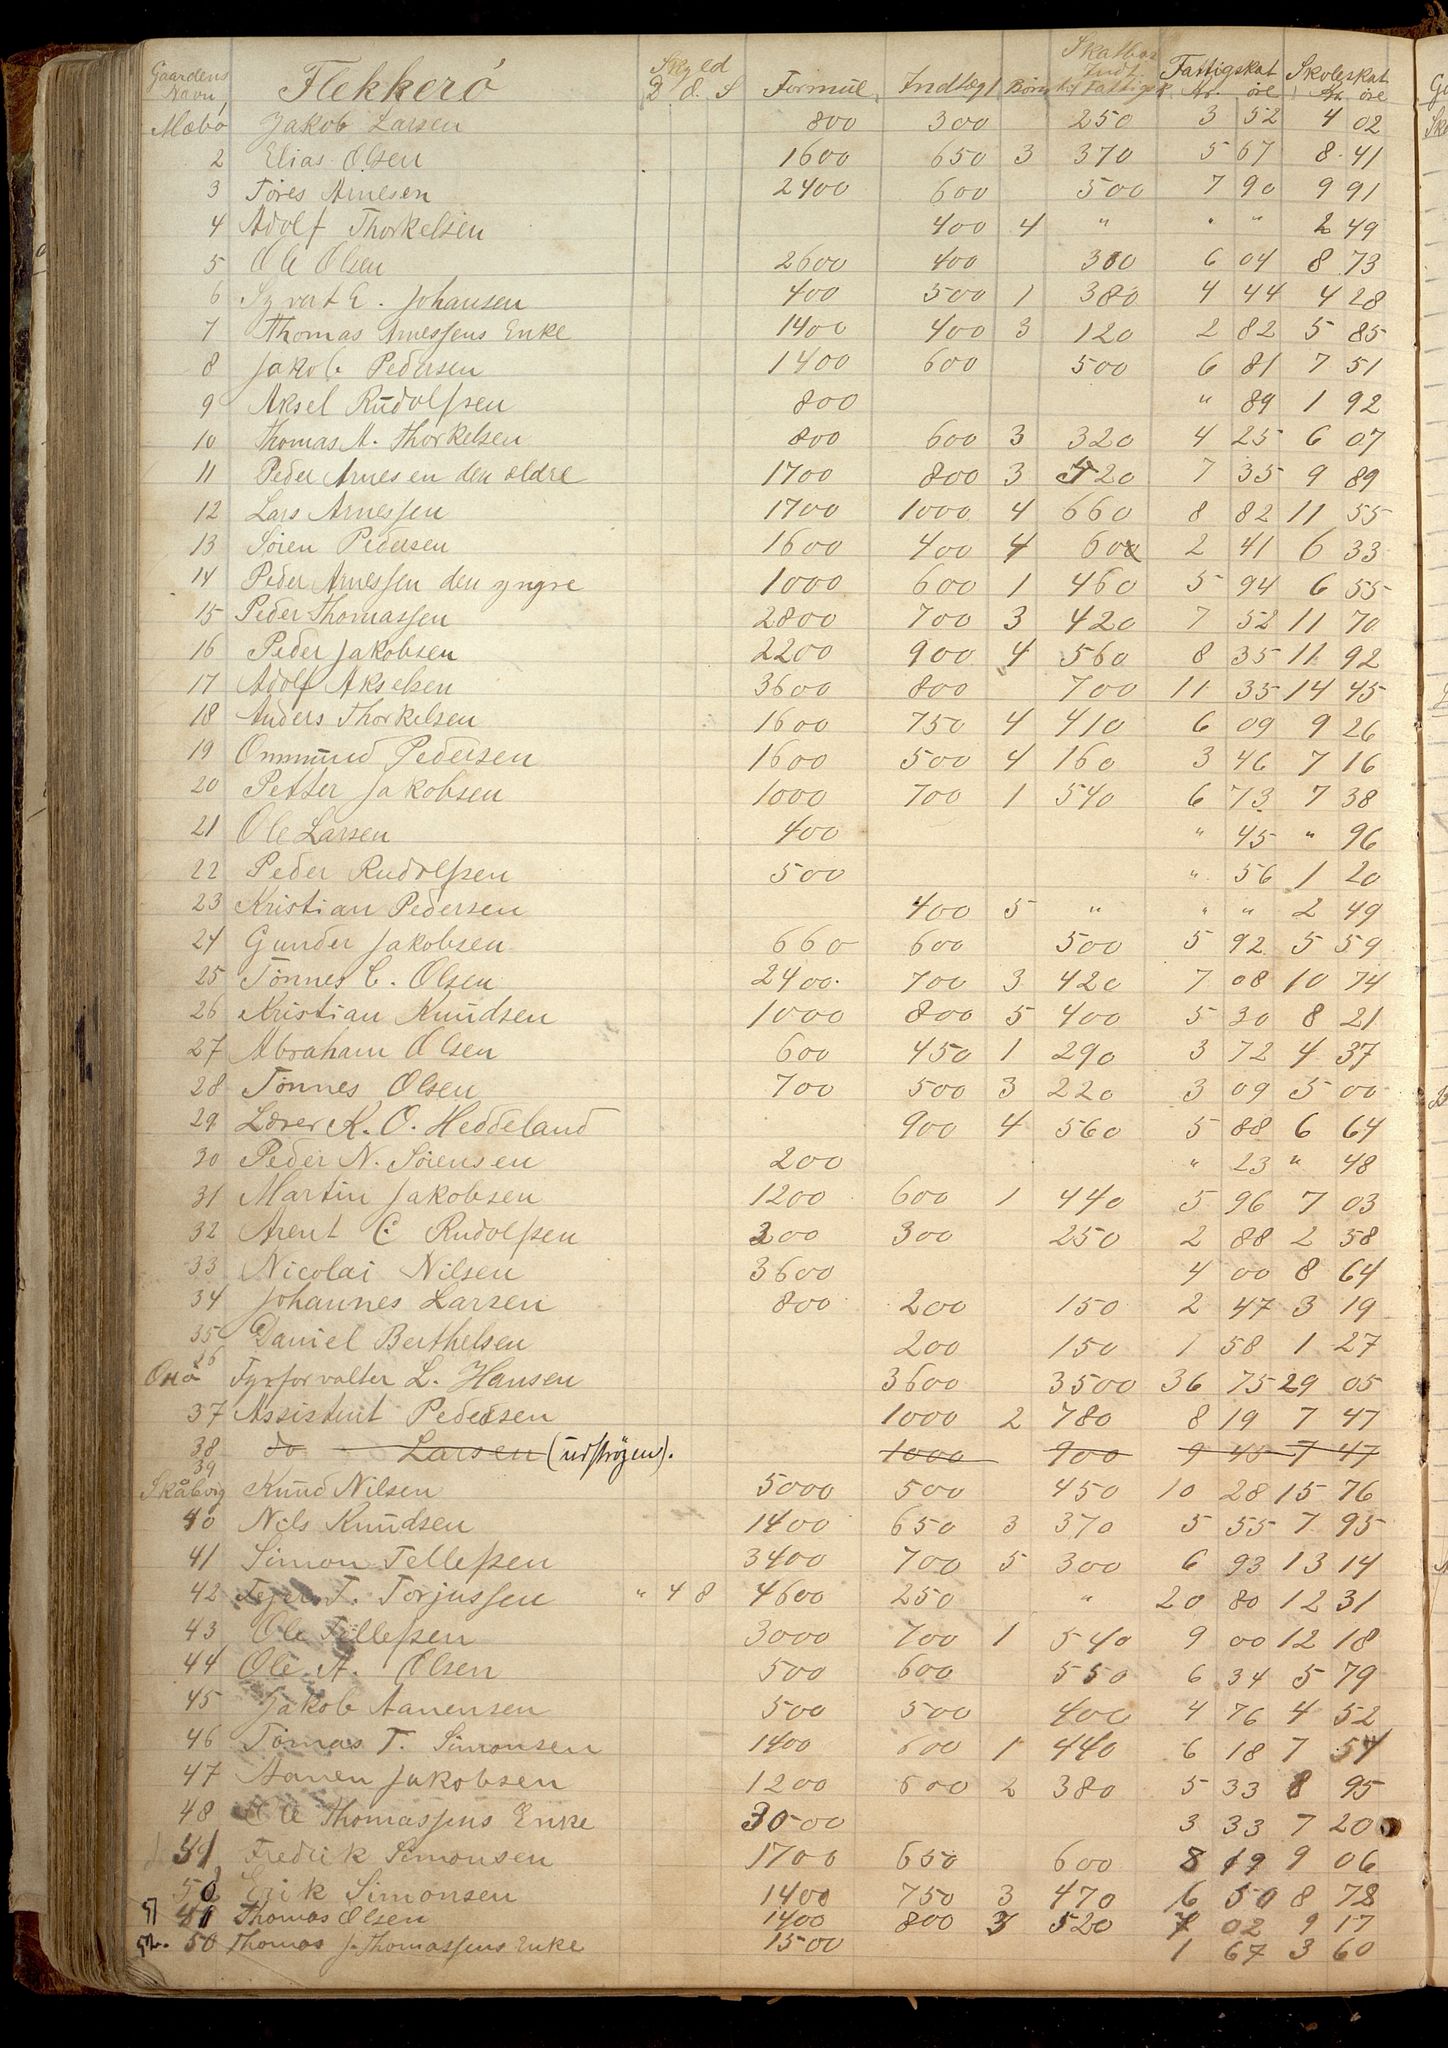 Gaardens Navn Flekkerö Skyld D. O. S Formue Indtægt Börn Skatbar Indt. til Fattigsk. Fattigskat Kr. öre Skoleskat Kr. öre
Mæbö Jakob Larsen 800 300 250 3 52 4 02
2 Elias Olsen 1600 650 3 370 5 67 8 41
3 Töres Arnesen 2400 600 500 7 90 9 91
4 Adolf Thorkelsen 400 4 " " " 2 49
5 Ole Olsen 2600 400 300 6 04 8 73
6 Syvert E. Johansen 400 500 1 380 4 44 4 28
7 Thomas Arnessens Enke 1400 400 3 120 2 82 5 85
8 Jakob Pedersen 1400 600 500 6 81 7 51
9 Aksel Rudolfsen 800 " 89 1 92
10 Thomas A. Thorkelsen 800 600 3 320 4 25 6 07
11 Peder Arnesen den eldre 1700 800 3 520 7 35 9 89
12 Lars Arnessen 1700 1000 4 660 8 82 11 55
13 Sören Pedersen 1600 400 4 60 2 41 6 33
14 Peder Arnessen den yngre 1000 600 1 460 5 94 6 55
15 Peder Thomassen 2800 700 3 420 7 52 11 70
16 Peder Jakobsen 2200 900 4 560 8 35 11 92
17 Adolf Akselsen 3600 800 700 11 35 14 45
18 Anders Thorkelsen 1600 750 4 410 6 09 9 26
19 Ommund Pedersen 1600 500 4 160 3 46 7 16
20 Petter Jakobsen 1000 700 1 540 6 73 7 38
21 Ole Larsen 400 " 45 " 96
22 Peder Rudolfsen 500 " 56 1 20
23 Kristian Pedersen 400 5 " " " 2 49
24 Gunder Jakobsen 660 600 500 5 92 5 59
25 Tönnes C. Olsen 2400 700 3 420 7 08 10 74
26 Kristian Knudsen 1000 800 5 400 5 30 8 21
27 Abraham Olsen 600 450 1 290 3 72 4 37
28 Tönnes Olsen 700 500 3 220 3 09 5 00
29 Lærer K. O. Heddeland 900 4 560 5 88 6 64
30 Peder N. Sörensen 200 " 23 " 48
31 Martin Jakobsen 1200 600 1 440 5 96 7 03
32 Arent C. Rudolfsen 200 300 250 2 88 2 58
33 Nicolai Nilsen 3600 4 00 8 64
34 Johannes Larsen 800 200 150 2 47 3 19
35 Daniel Berthelsen 200 150 1 58 1 27
36 Oxö Fyrforvalter L. Hansen 3600 3500 36 75 29 05
37 Assistent Pedersen 1000 2 780 8 19 7 47
38 do - Larsen (udströgen). 1000 900 9 45 7 47
39 Skålevig Knud Nilsen 5000 500 450 10 28 15 76
40 Nils Knudsen 1400 650 3 370 5 55 7 95
41 Simon Tellefsen 3400 700 5 300 6 93 13 14
42 T. Torjussen " 4 8 4600 250 " 20 80 12 31
43 Ole Tellefsen 3000 700 1 540 9 00 12 18
44 Ole A. Olsen 500 600 550 6 34 5 79
45 Jakob Aanensen 500 500 400 4 76 4 52
46 Tomas T. Simonsen 1400 600 1 440 6 18 7 51
47 Aanen Jakobsen 1200 600 2 380 5 33 8 95
48 Ole Thomassens Enke 3000 3 33 7 20
Fredrik Simonsen 1700 650 600 8 19 9 06
50 Erik Simonsen 1400 750 3 470 6 50 8 78
51 Thomas Olsen 1400 800 3 520 7 02 9 17
52. 50 Thomas J. Thomassens Enke 1500 1 67 3 60